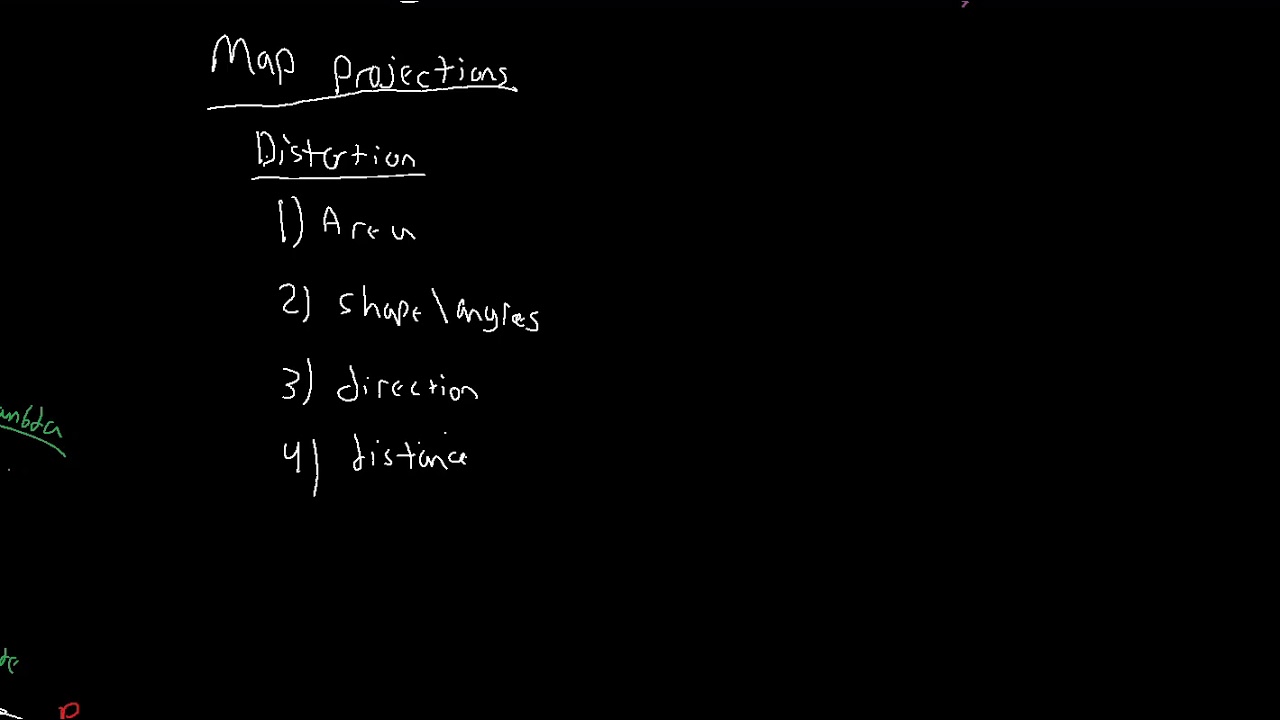 Map Projections
Distortion
1) Area
2) shape\angles
3) direction
4) distance